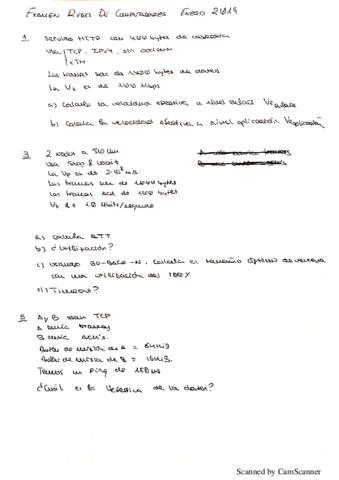 EXAMEN REDES DE COMPUTADORES ENERO 2019
1. Servidor HTTP con 400 bytes de cabecera
Usa TCP, IPv4, sin
ETH
Las tramas son de 1400 bytes de datos
La Vt es de 100 Mbps
a) Calcula la velocidad efectiva a nivel enlace Ve enlace
b) Calcula la velocidad efectiva a nivel aplicación Ve aplicación
3 2 nodos a 50 Km
Usa Stop & Wait
La Vp es de 2·10⁸ m/s.
Las tramas son de 1000 bytes
Las tramas ACK de 100 bytes.
Vt de 10 Mbits/segundo
a) Calcula RTT
b) ¿Utilización?
c) Usando GO-BACK-N. Calcula el tamaño óptimo de ventana
con una utilización del 100%
d) Timeout?
5. A y B usan TCP
A envía tramas
B envía ACK's.
Buffer de emisión de A = 64KB
Buffer de emisión de B = 16KB.
Tenemos un Ping de
¿Cuál es la Vefectiva de los datos?
Scanned by CamScanner